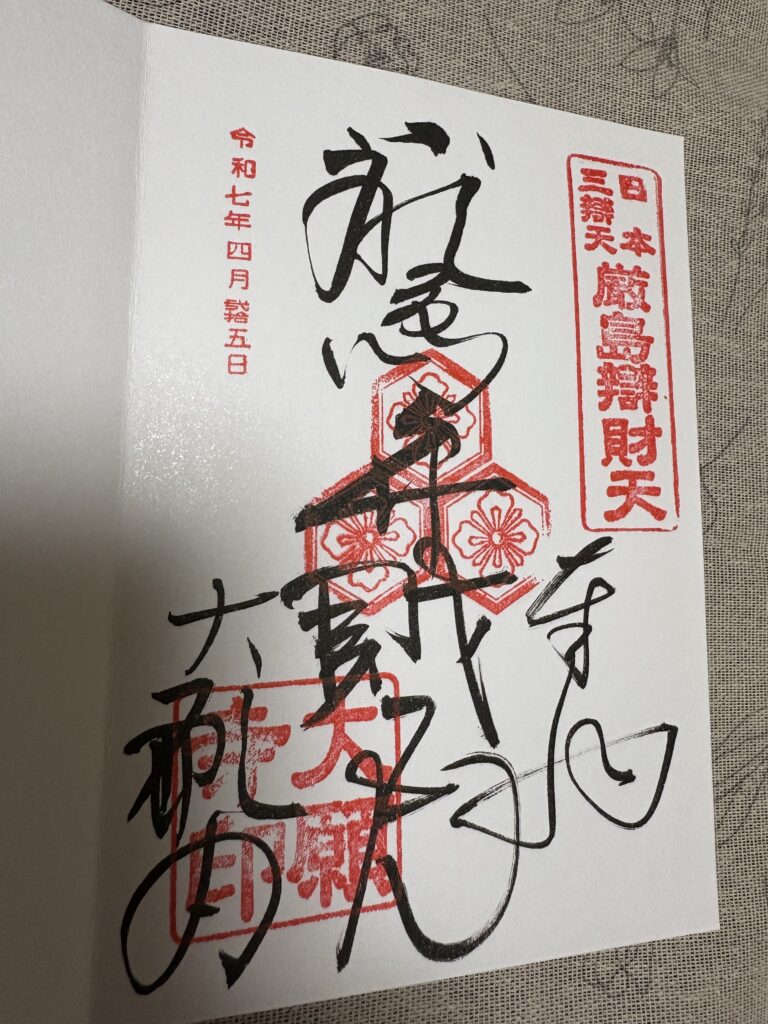 日本
三辯天
厳島辯財天
奉拝
厳島弁財天
大願寺
大願
寺印
令和七年四月弐拾五日